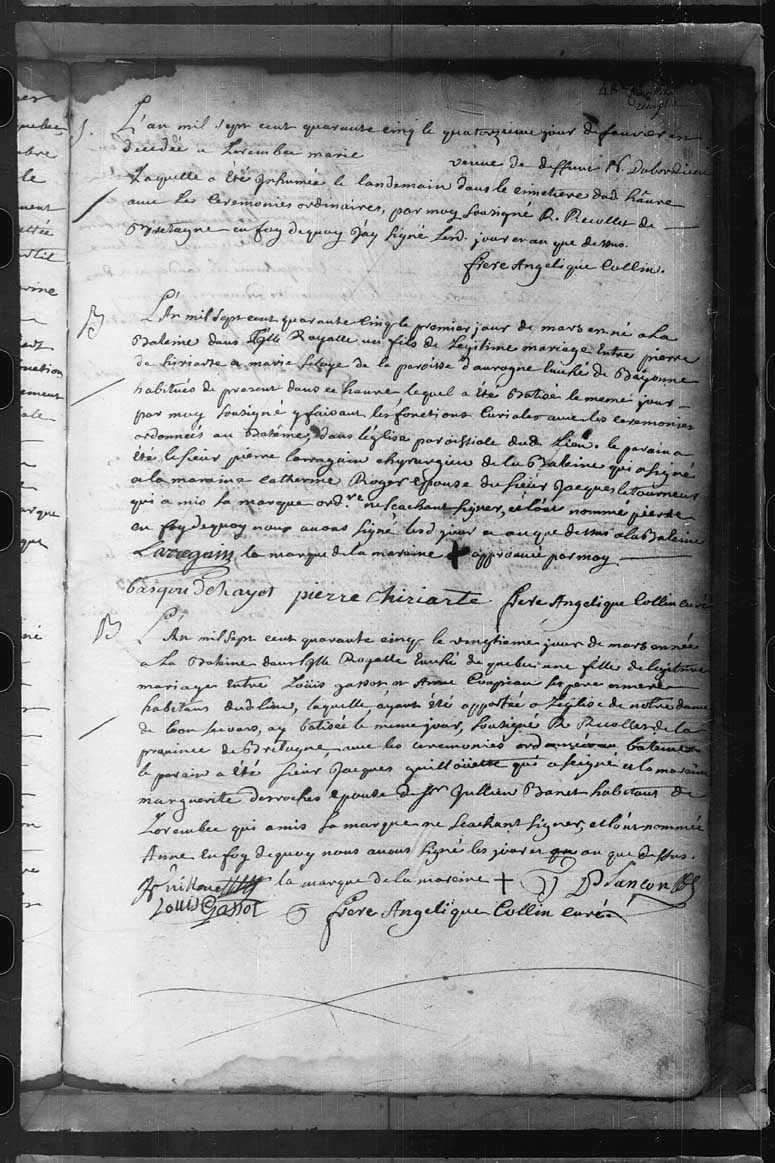 48e
S.
L'an mil sept cent quarante cinq le quatorzieme jour de fevrier est
decedée a Lorembec marie veuve de deffunt N. Dubordieu
Laquelle a été Inhumée le landemain dans le cimetiere dud hâure
avec Les Ceremonies ordinaires, par moy Sousigné R. Recollet de
Bretagne en foy de quoy J'ay signé Lesd. jour et an que dessus.
frere Angelique Collin.
B
L'An mil sept cent quarante Cinq le premier jour de mars est né a La
Baleine dans l'Isle Royalle un fils de Legitime mariage Entre pierre
de hiriarte et marie de la paroisse d'aurogne Evêché de Bayonne
habitués de present dans ce haure lequel a été Batisé le meme jour
par moy sousigné y faisant les fonctions Curiales avec les ceremonies
ordonnées au Batême, dans l'église paroissiale dud. Lieu. le parain a
été le sieur pierre Larragain chyrurgien de la Baleine qui a signé
et la maraine Catherine Roger epouse du sieur Jacques le Tourneur
qui a mis la marque ordre. ne scachant signer, et l'ont nommé pierre
en foy de quoy nous avons signé lesd jour et an que dessus a la Baleine
Laragain la marque de la maraine + approuvée par moy
Baspou Dehayot pierre hiriarte frere Angelique Collin curé
B
L'An mil sept cent quarante cinq le vingtieme jour de mars est née
a La Baleine dans l'Isle Royalle Evêché de quebec une fille de legitime
mariage Entre Loüis gassot et Anne Coupeau ses pere et mere
habitans dud. Lieu, laquelle ayant été apportée a L'église de notre dame
de bon secours, ay batisée le meme jour, sousigné R. Recollet de la
province de Bretagne avec les ceremonies ord au bateme
le parain a été sieur Jacques guilloüette qui a signé et la maraine
marguerite desroches epouse de Sr Jullien Banet habitant de
Lorembec qui a mis la marque ne scachant signer, et l'ont nommée
Anne en foy de quoy nous avons signé les jour et an que dessus.
la marque de la maraine + Plançon
Louis Gassot frere Angelique Collin curé